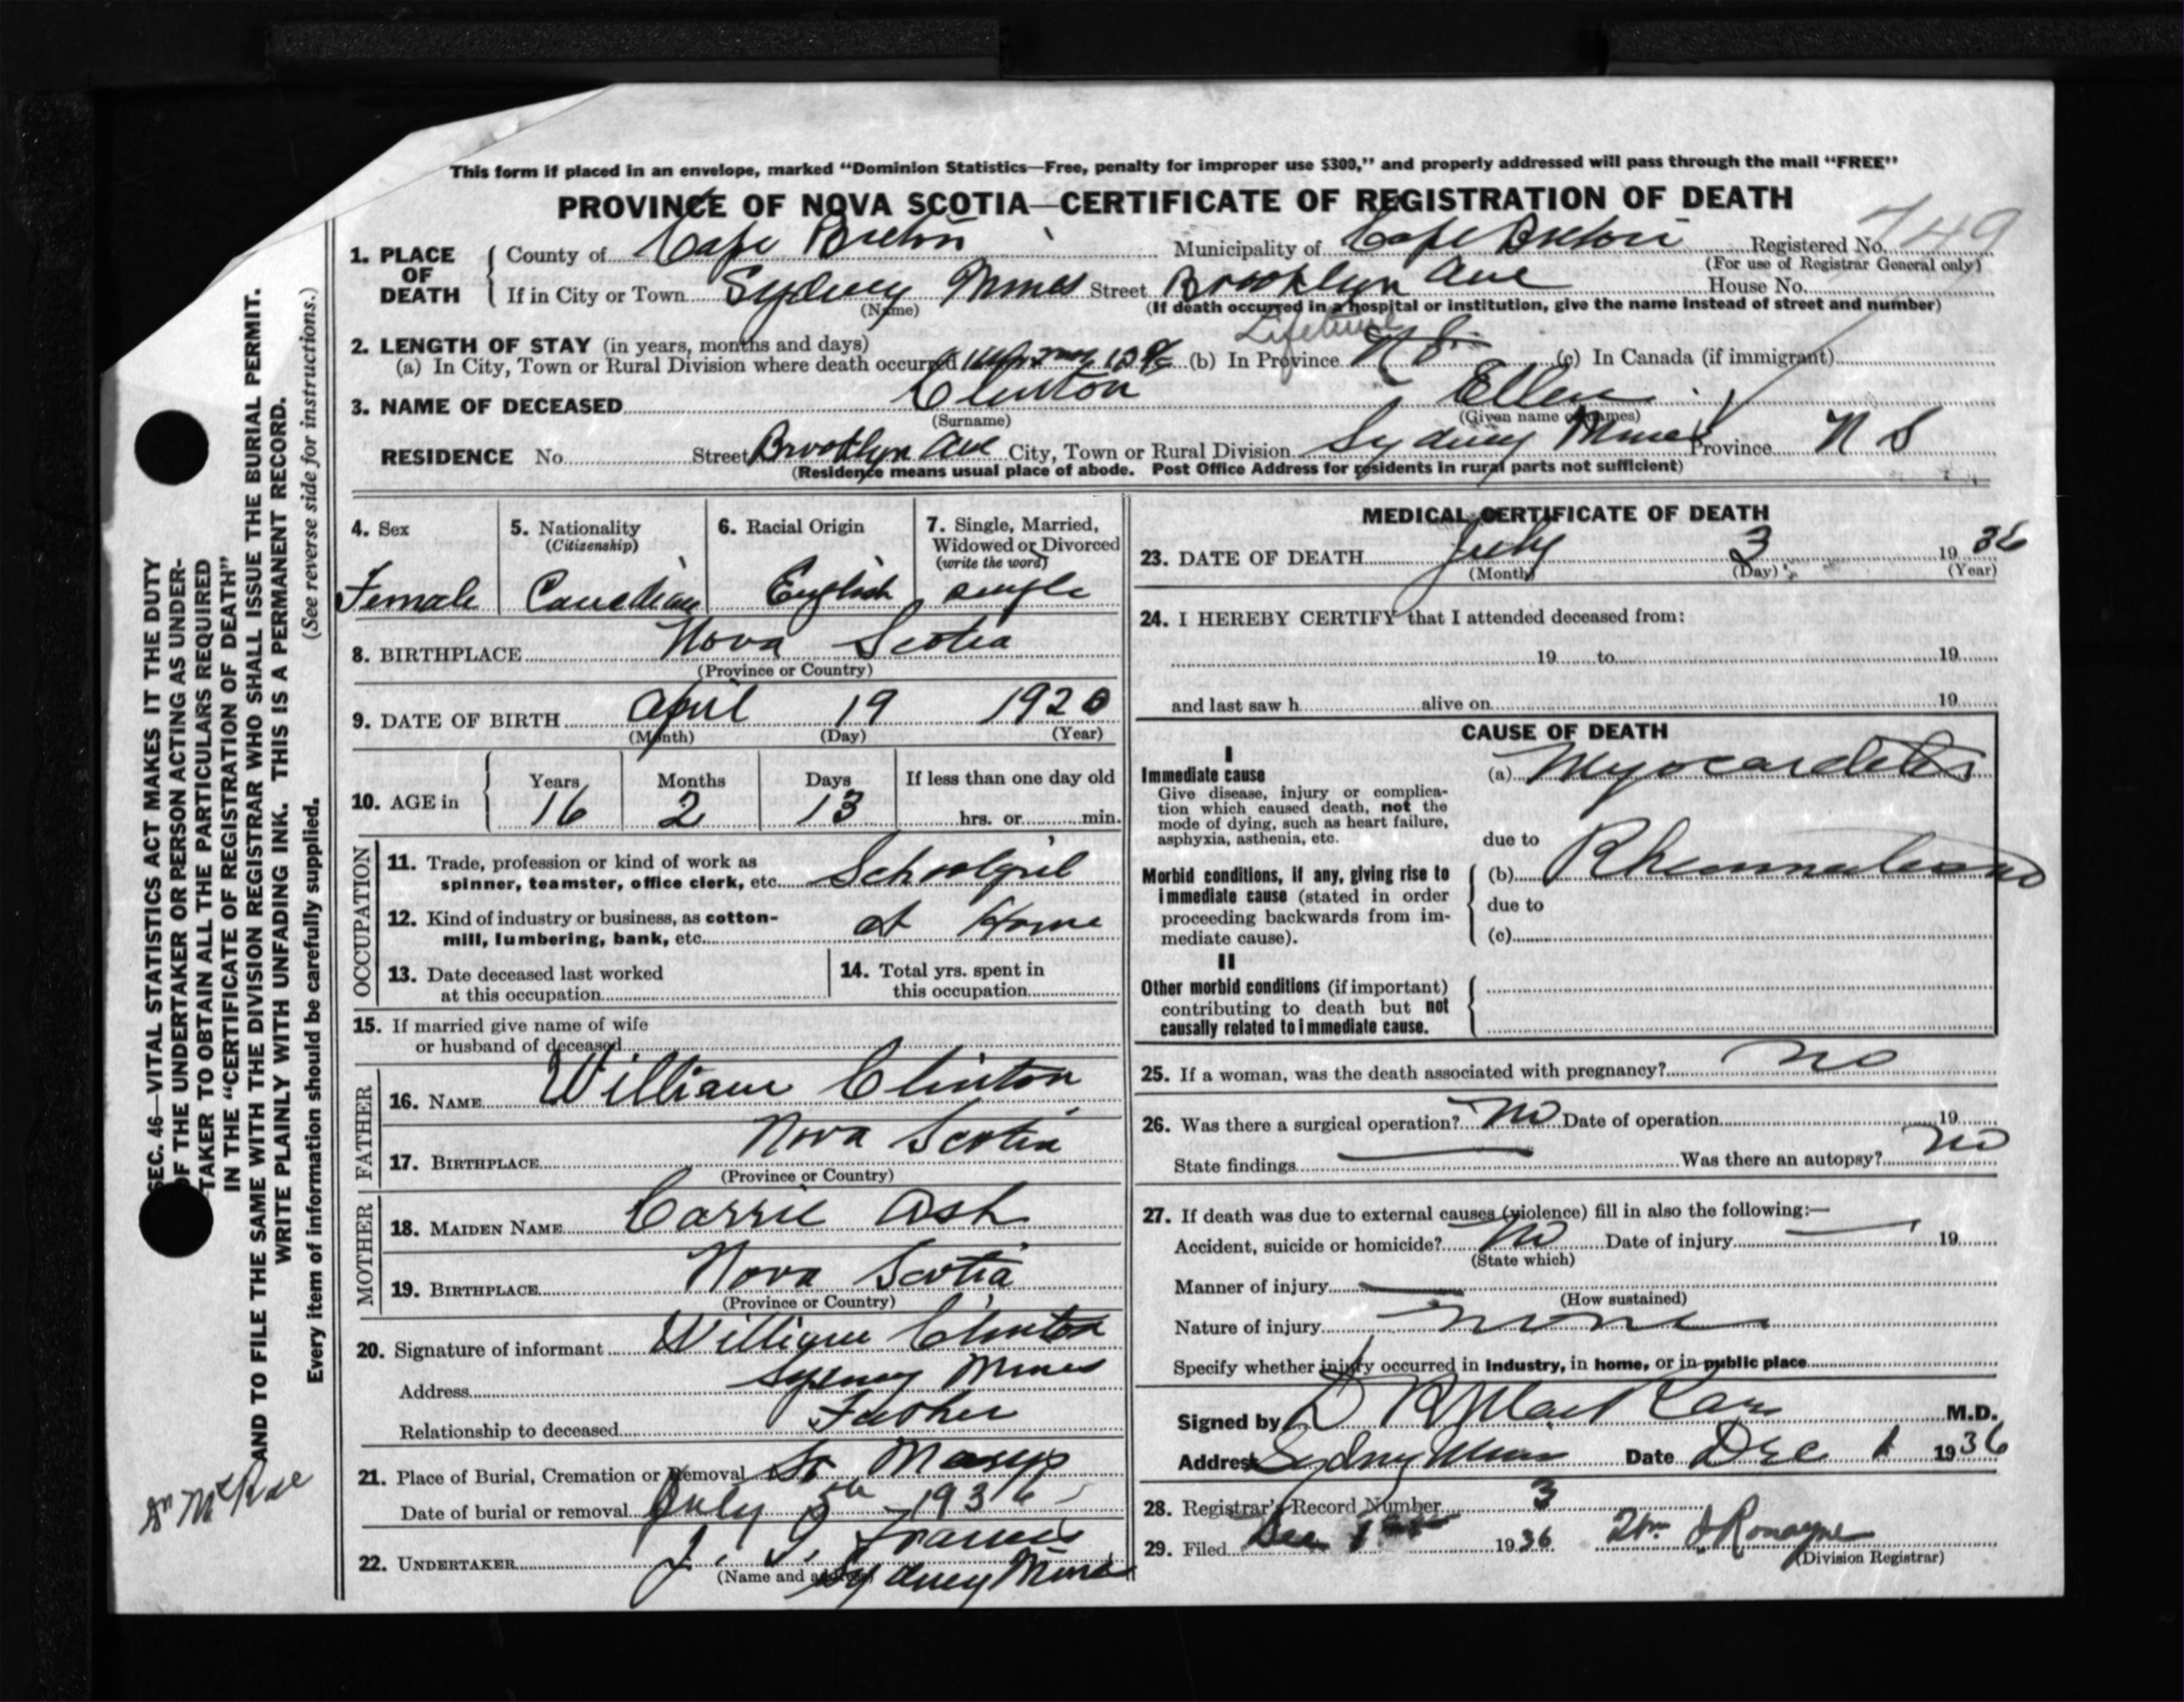 This form if placed in an envelope, marked "Dominion Statistics—Free, penalty for improper use $300," and properly addressed will pass through the mail "FREE"
PROVINCE OF NOVA SCOTIA—CERTIFICATE OF REGISTRATION OF DEATH
749
1. PLACE OF DEATH County of Cape Breton Municipality of Cape Breton Registered No.
(For use of Registrar General only)
If in City or Town Sydney Mines Street Brooklyn Ave House No.
(Name) (If death occurred in a hospital or institution, give the name instead of street and number)
Lifetime
2. LENGTH OF STAY (in years, months and days)
(a) In City, Town or Rural Division where death occurred (b) In Province N S. (c) In Canada (if immigrant)
3. NAME OF DECEASED Clinton Ellen
(Surname) (Given name or names)
RESIDENCE No. Street Brooklyn Ave City, Town or Rural Division Sydney Mines Province N S
(Residence means usual place of abode. Post Office Address for residents in rural parts not sufficient)
4. Sex 5. Nationality (Citizenship) 6. Racial Origin 7. Single, Married, Widowed or Divorced (write the word)
Female Canadian English single
8. BIRTHPLACE Nova Scotia
(Province or Country)
9. DATE OF BIRTH April 19 1920
(Month) (Day) (Year)
10. AGE in Years Months Days If less than one day old
16 2 13 hrs. or min.
OCCUPATION
11. Trade, profession or kind of work as
spinner, teamster, office clerk, etc. Schoolgirl
12. Kind of industry or business, as cotton-
mill, lumbering, bank, etc. at Home
13. Date deceased last worked at this occupation
14. Total yrs. spent in this occupation
15. If married give name of wife
or husband of deceased
FATHER
16. NAME William Clinton
17. BIRTHPLACE Nova Scotia
(Province or Country)
MOTHER
18. MAIDEN NAME Carrie Ash
19. BIRTHPLACE Nova Scotia
(Province or Country)
20. Signature of informant William Clinton
Address Sydney Mines
Relationship to deceased Father
21. Place of Burial, Cremation or Removal St Marys
Date of burial or removal July 5th 1936
22. UNDERTAKER J. J. Francis
(Name and address) Sydney Mines
MEDICAL CERTIFICATE OF DEATH
23. DATE OF DEATH July 3 1936
(Month) (Day) (Year)
24. I HEREBY CERTIFY that I attended deceased from:
19 to 19
and last saw h alive on 19
CAUSE OF DEATH
I
Immediate cause (a) Myocarditis
Give disease, injury or complica-
tion which caused death, not the
mode of dying, such as heart failure,
asphyxia, asthenia, etc.
due to
Morbid conditions, if any, giving rise to (b) Rheumatism
immediate cause (stated in order due to
proceeding backwards from im-
mediate cause). (c)
II
Other morbid conditions (if important)
contributing to death but not
causally related to immediate cause.
25. If a woman, was the death associated with pregnancy? no
26. Was there a surgical operation? No Date of operation 19
State findings Was there an autopsy? no
27. If death was due to external causes (violence) fill in also the following:—
Accident, suicide or homicide? No Date of injury 19
(State which)
Manner of injury
(How sustained)
Nature of injury none
Specify whether injury occurred in industry, in home, or in public place
Signed by M.D.
Address Sydney Mines Date Dec 1 1936
28. Registrar's Record Number 3
29. Filed Dec 1st 1936 Wm J Romayne
(Division Registrar)
SEC. 46—VITAL STATISTICS ACT MAKES IT THE DUTY
OF THE UNDERTAKER OR PERSON ACTING AS UNDER-
TAKER TO OBTAIN ALL THE PARTICULARS REQUIRED
IN THE "CERTIFICATE OF REGISTRATION OF DEATH"
AND TO FILE THE SAME WITH THE DIVISION REGISTRAR WHO SHALL ISSUE THE BURIAL PERMIT.
WRITE PLAINLY WITH UNFADING INK. THIS IS A PERMANENT RECORD.
(See reverse side for instructions.)
Every item of information should be carefully supplied.
Dr McRae